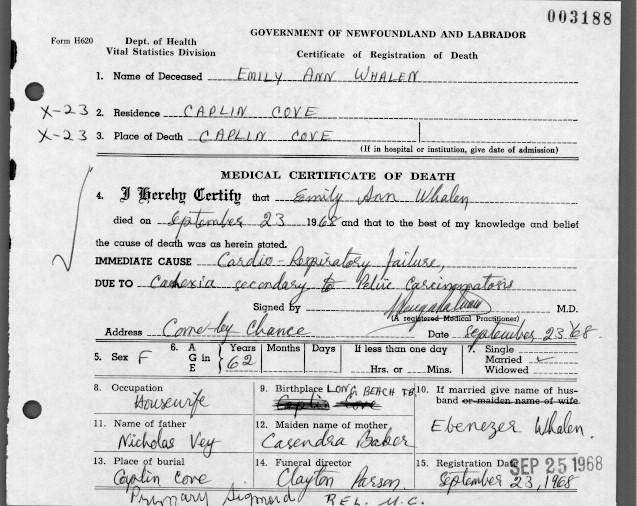 003188
GOVERNMENT OF NEWFOUNDLAND AND LABRADOR
Form H620 Dept. of Health
Vital Statistics Division Certificate of Registration of Death
1. Name of Deceased EMILY ANN WHALEN
X-23 2. Residence CAPLIN COVE
X-23 3. Place of Death CAPLIN COVE
(If in hospital or institution, give date of admission)
MEDICAL CERTIFICATE OF DEATH
4. I Hereby Certify that Emily Ann Whalen
died on September 23 1968 and that to the best of my knowledge and belief
the cause of death was as herein stated.
IMMEDIATE CAUSE Cardio-Respiratory failure,
DUE TO Cachexia secondary to Pelvic Carcinomatosis
Signed by M.D.
(A registered Medical Practitioner)
Address Come-by Chance Date September 23 '68.
5. Sex F 6. AGE in { Years 62 Months Days If less than one day Hrs. or Mins. 7. Single Married ✓ Widowed
8. Occupation Housewife
9. Birthplace LONG BEACH T.B. Caplin Cove
10. If married give name of husband or maiden name of wife Ebenezer Whalen.
11. Name of father Nicholas Vey
12. Maiden name of mother Casendra Baker
13. Place of burial Caplin Cove
14. Funeral director Clayton Parson.
15. Registration Date September 23, 1968
SEP 25 1968
Primary Sigmoid REL. U.C.